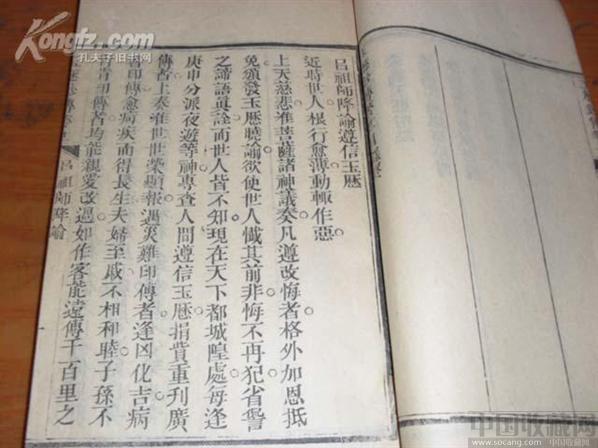 Kongfz.com
孔夫子旧书网
呂祖師降諭遵信玉歷
近時世人根行愈薄動輒作惡
上天慈悲准菩薩諸神議奏凡遵改悔者格外加恩抵
免頒發玉歷曉諭欲使世人懺其前非悔不再犯省
之諦語眞詮而世人皆不知現在天下都城隍處每逢
庚申分派夜遊等神專查人間遵信玉歷捐貲重刊廣
傳者上奏准世世榮顯報遇災難印傳者逢凶化吉病
者印傳愈病疾而得長生夫婦至戚不相和睦子孫不
肖印傳者均能親愛改過如作客能遠傳千百里之
呂祖師降諭
中国收藏网
www.socang.com 中国收藏网